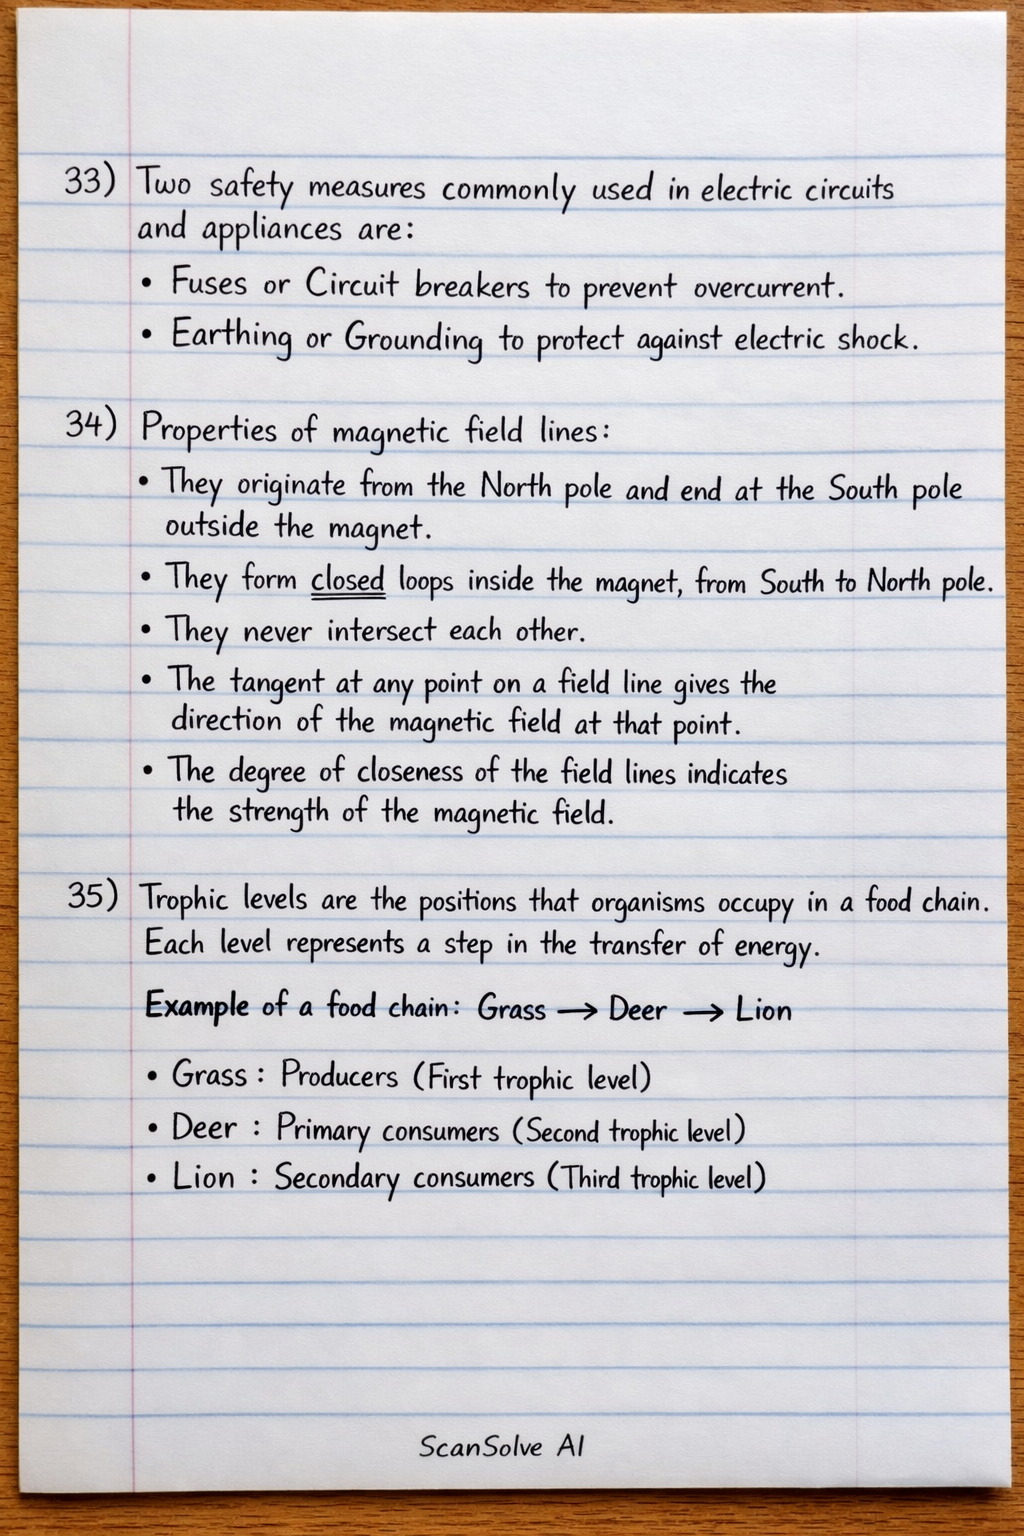 33) Two safety measures commonly used in electric circuits
and appliances are:
• Fuses or Circuit breakers to prevent overcurrent.
• Earthing or Grounding to protect against electric shock.
34) Properties of magnetic field lines:
• They originate from the North pole and end at the South pole
outside the magnet.
• They form closed loops inside the magnet, from South to North pole.
• They never intersect each other.
• The tangent at any point on a field line gives the
direction of the magnetic field at that point.
• The degree of closeness of the field lines indicates
the strength of the magnetic field.
35) Trophic levels are the positions that organisms occupy in a food chain.
Each level represents a step in the transfer of energy.
Example of a food chain: Grass → Deer → Lion
• Grass : Producers (First trophic level)
• Deer : Primary consumers (Second trophic level)
• Lion : Secondary consumers (Third trophic level)
ScanSolve AI